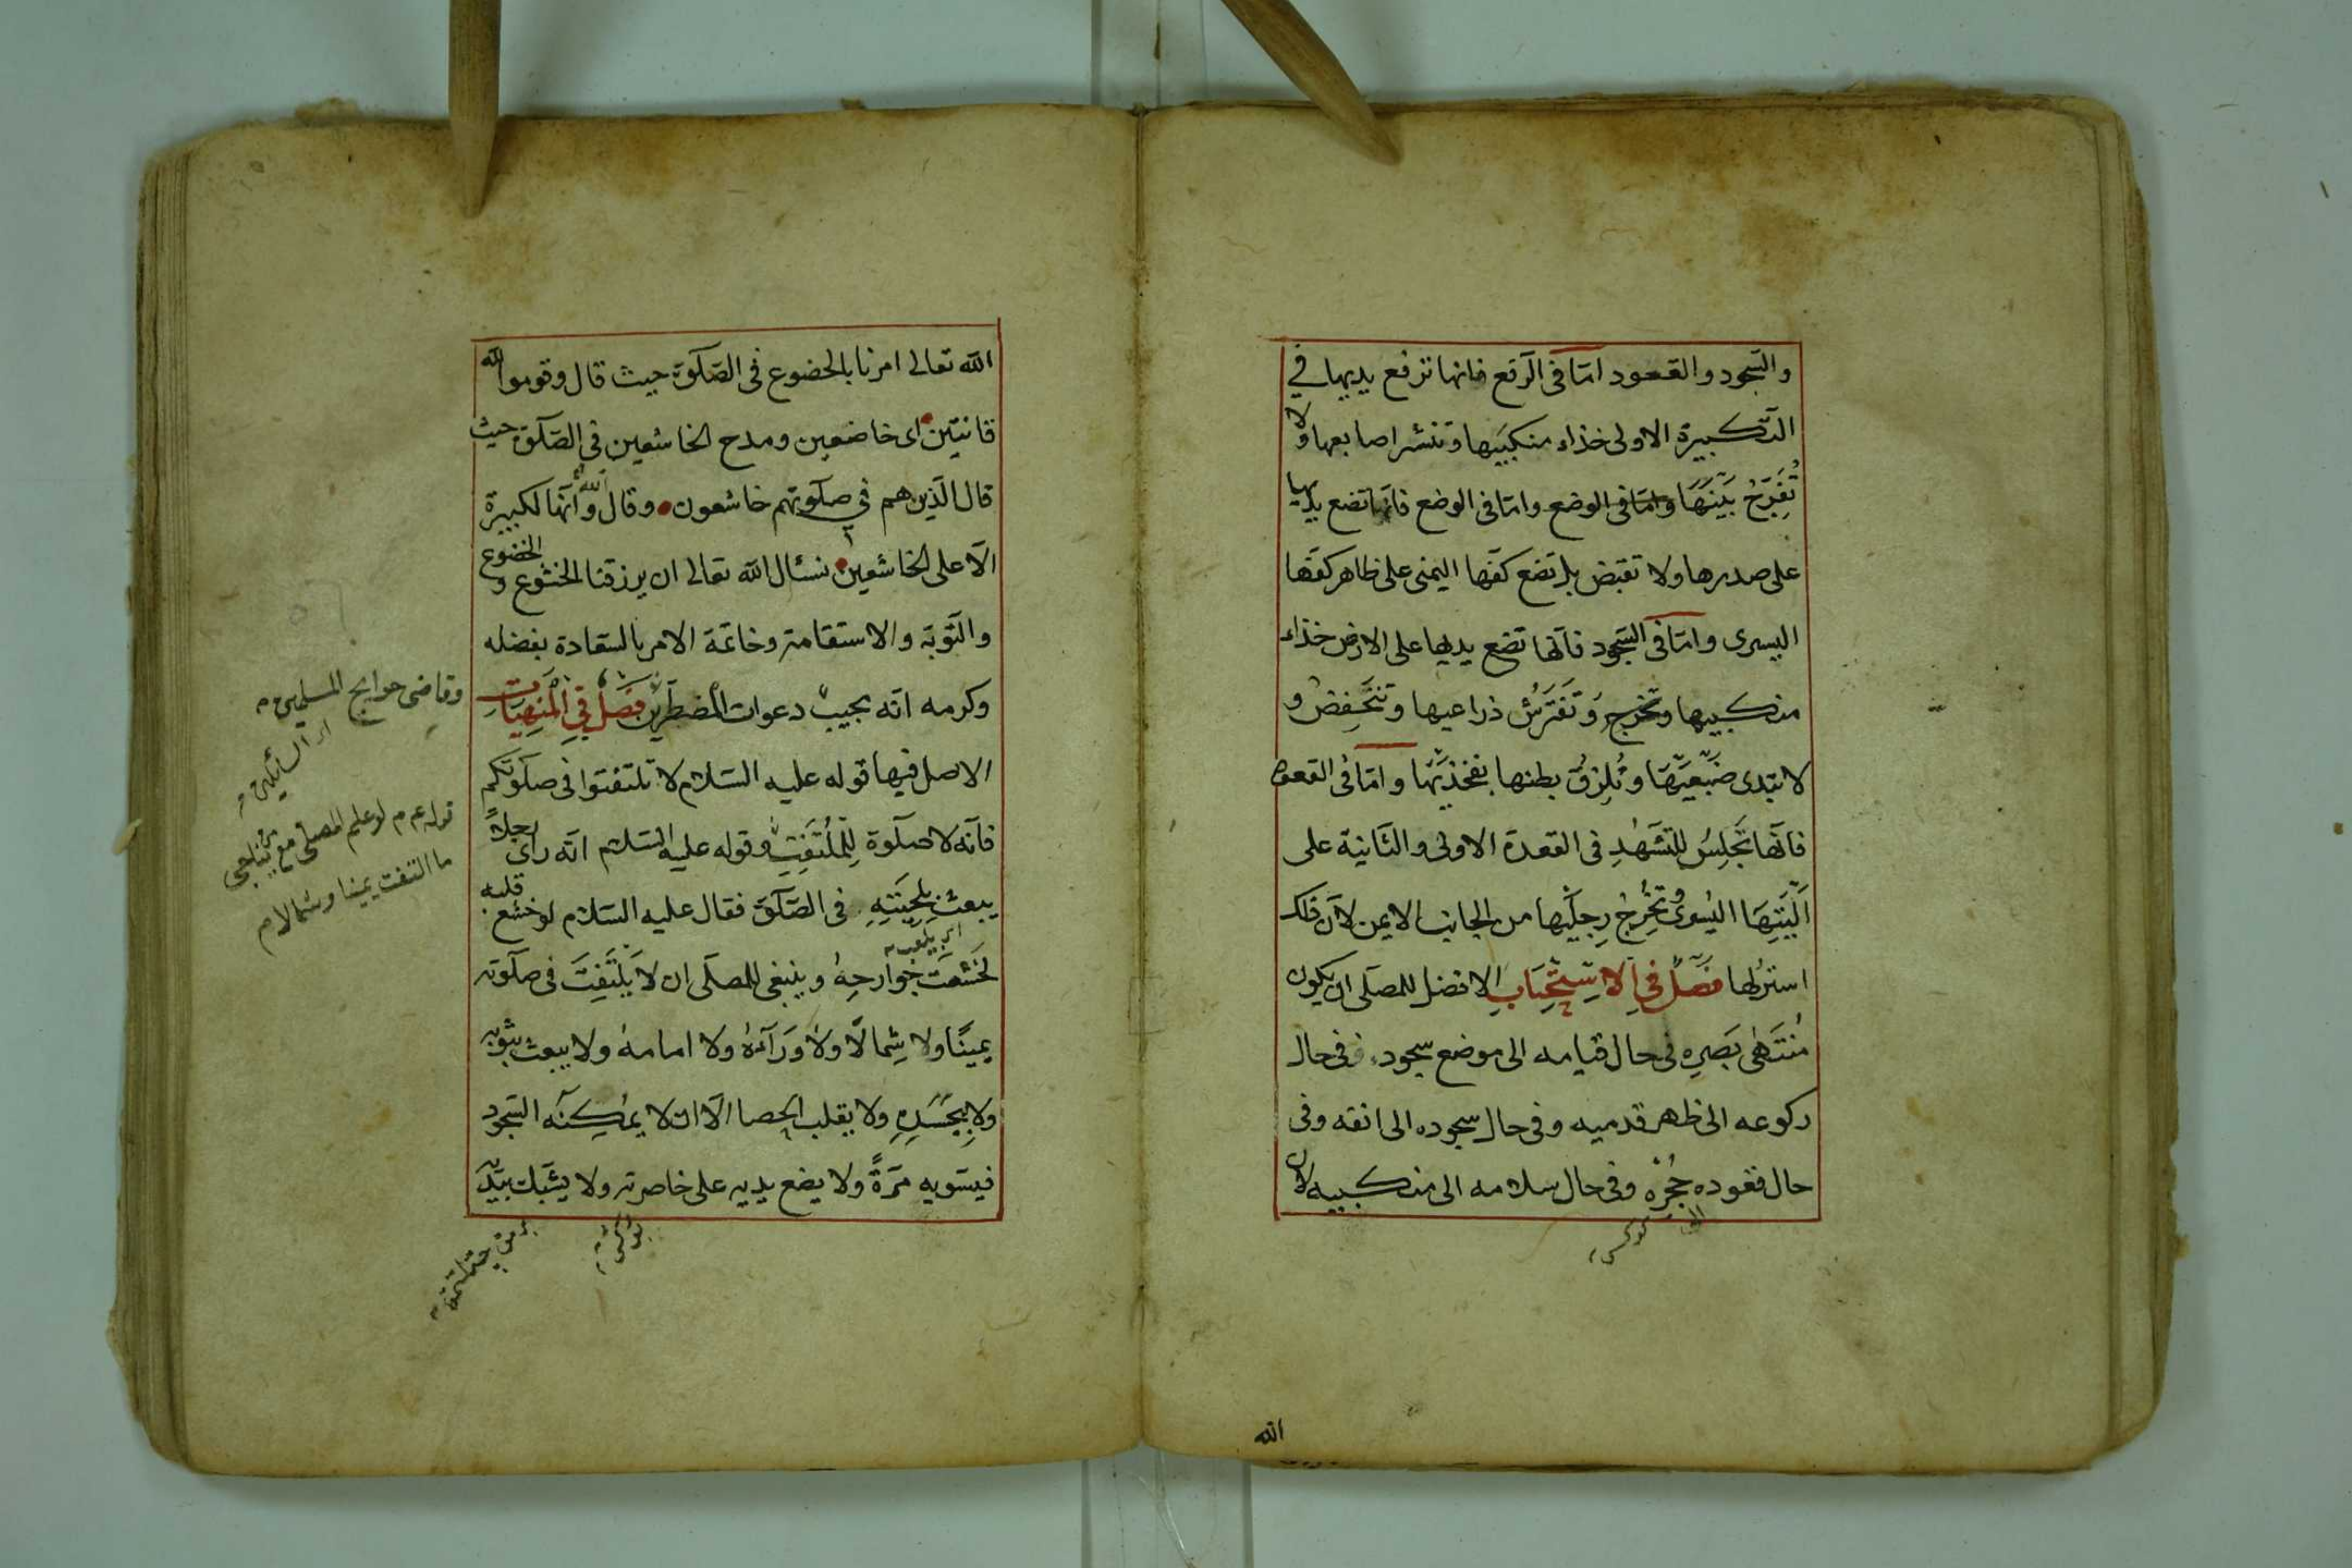 والسّجود والقعود امّا فى الرّفع فانها ترفع يديها في
التّكبيرة الاولى خذاء منكبَيها وتنشر اصابعها ولا
تُفَرِّجُ بَيْنَهَا وامّا فى الوضع وامّا فى الوضع فانّها تضع يديها
على صدرها ولا تقبض بل تضع كفّها اليمنى على ظاهر كفّها
اليسرى وامّا فى السّجود فانّها تضع يديها على الارض خذاء
منكبيها وتخرج وَتَفْتَرِشُ ذراعيها وتَنْخَفِضُ و
لا تبدى ضَبْعَيْهَا وتُلزِقُ بطنها بفخذيْهَا وامّا فى القعود
فانّها تَجْلِسُ للتَّشَهُّدِ فى القعدة الاولى والثّانية على
اَلْيَتِهَا اليُسرى وتُخْرِجُ رِجلَيْها من الجانب الايمن لانّ ذلك
استر لها فَصْلٌ فِي الاسْتِحْبَابِ الافضل للمصلّى ان يكون
مُنْتَهٰى بَصَرِهِ فى حال قيامه الى موضع سجوده وفى حال
ركوعه الى ظهر قدميه وفى حال سجوده الى انفه وفى
حال قعوده حُجْرِهِ وفى حال سلامه الى منكبيه لانّ
الله
الله تعالى امرنا بالخضوع فى الصّلوة حيث قال وقوموا لله
قانتين اى خاضعين ومدح الخاشعين فى الصّلوة حيث
قال الّذين هم في صلوتهم خاشعون وقال الله وَانّها لكبيرة
الّا على الخاشعين نسئال الله تعالى ان يرزقنا الخشوع و الخضوع
والتّوبة والاستقامة وخاتمة الامر بالسّعادة بفضله
وكرمه انّه يجيب دعوات المضطرّين فَصْلٌ فِي الْمَنْهِيَّاتِ
الاصل فيها قوله عليه السّلام لا تلتفتوا فى صلوتكم
فانّه لا صلوة لِلْمُلْتَفِتِ وقوله عليه السّلام انّه راى رجلاً
يبعث بِلِحْيَتِهِ فى الصّلوة فقال عليه السّلام لو خشع قلبه
اى يلعب
لخَشَعَتْ جَوَارِحِهُ وينبغى للمصلّى ان لا يَلْتَفِتَ فى صلوته
يمينًا ولا شِمالًا ولا وَرَاءَهُ ولا امامهُ ولا يبعث بثوبه
ولا بِجَسَدِهِ ولا يقلب الحصا الّا ان لا يمكِنه السّجود
فيسّويه مَرّةً ولا يضع يديه على خاصرته ولا يشبك بيديه
وقاضى حوايج المسلمين
اى السائلين
قوله عم م لو علم المصلّى مع من يناجى
ما التفت يمينا وشمالا م